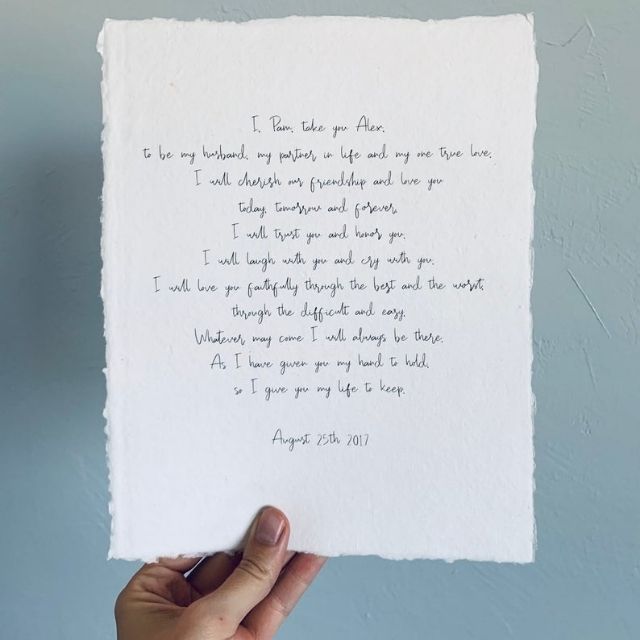 I, Pam, take you Alex,
to be my husband, my partner in life and my one true love.
I will cherish our friendship and love you
today, tomorrow and forever.
I will trust you and honor you.
I will laugh with you and cry with you.
I will love you faithfully through the best and the worst,
through the difficult and easy.
Whatever may come I will always be there.
As I have given you my hand to hold,
so I give you my life to keep.
August 25th 2017